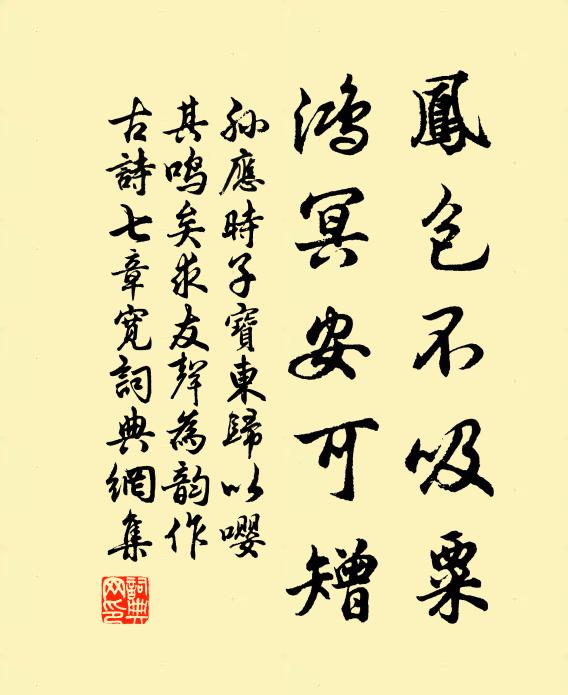 鳳色不吸粟
鴻冥安可矰
孫應時子寶東歸以嚶
其鳴矣求友聲為韵作
古詩七章寬詞典網集
詞典網印